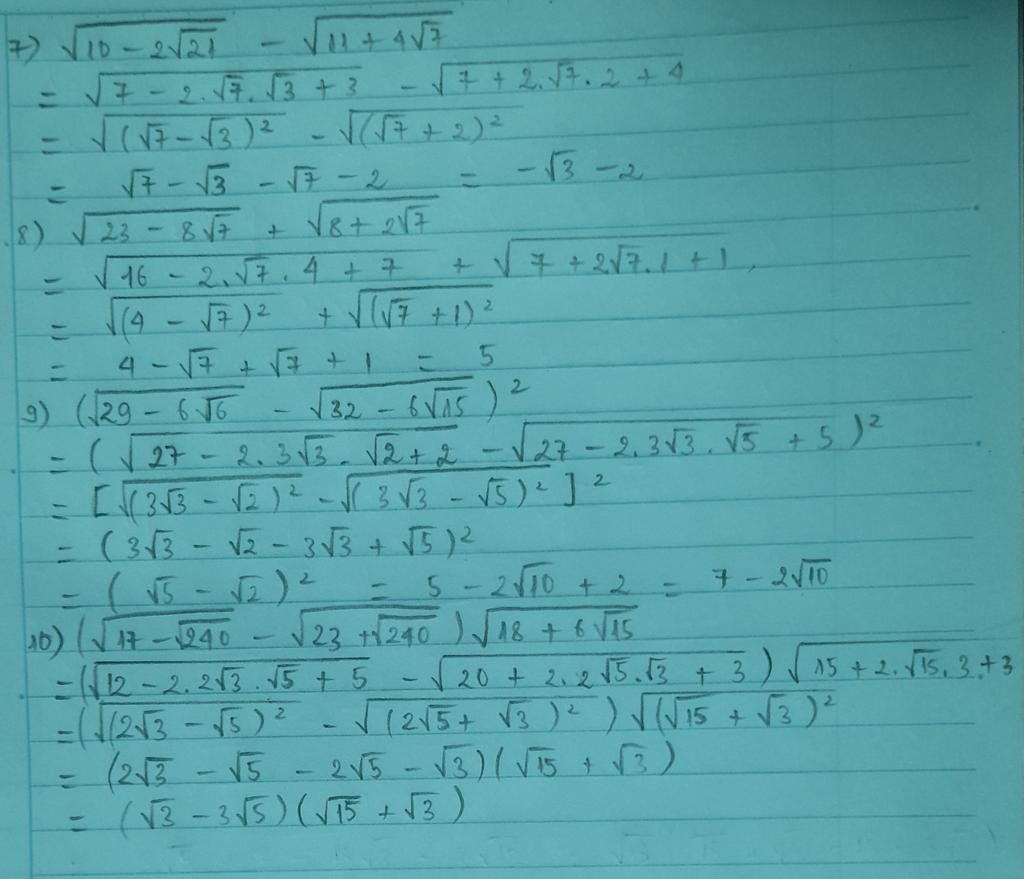 7) √(10 - 2√21) - √(11 + 4√7)
= √(7 - 2.√7.√3 + 3) - √(7 + 2.√7.2 + 4)
= √((√7 - √3)²) - √((√7 + 2)²)
= √7 - √3 - √7 - 2 = -√3 - 2
8) √(23 - 8√7) + √(8 + 2√7)
= √(16 - 2.√7.4 + 7) + √(7 + 2√7.1 + 1)
= √((4 - √7)²) + √((√7 + 1)²)
= 4 - √7 + √7 + 1 = 5
9) (√(29 - 6√6) - √(32 - 6√15))²
= (√(27 - 2.3√3.√2 + 2) - √(27 - 2.3√3.√5 + 5))²
= [√((3√3 - √2)²) - √((3√3 - √5)²)]²
= (3√3 - √2 - 3√3 + √5)²
= (√5 - √2)² = 5 - 2√10 + 2 = 7 - 2√10
10) (√(17 - √240) - √(23 + √240))√(18 + 6√15)
= (√(12 - 2.2√3.√5 + 5) - √(20 + 2.2√5.√3 + 3))√(15 + 2.√15.3 + 3)
= (√((2√3 - √5)²) - √((2√5 + √3)²))√((√15 + √3)²)
= (2√3 - √5 - 2√5 - √3)(√15 + √3)
= (√3 - 3√5)(√15 + √3)